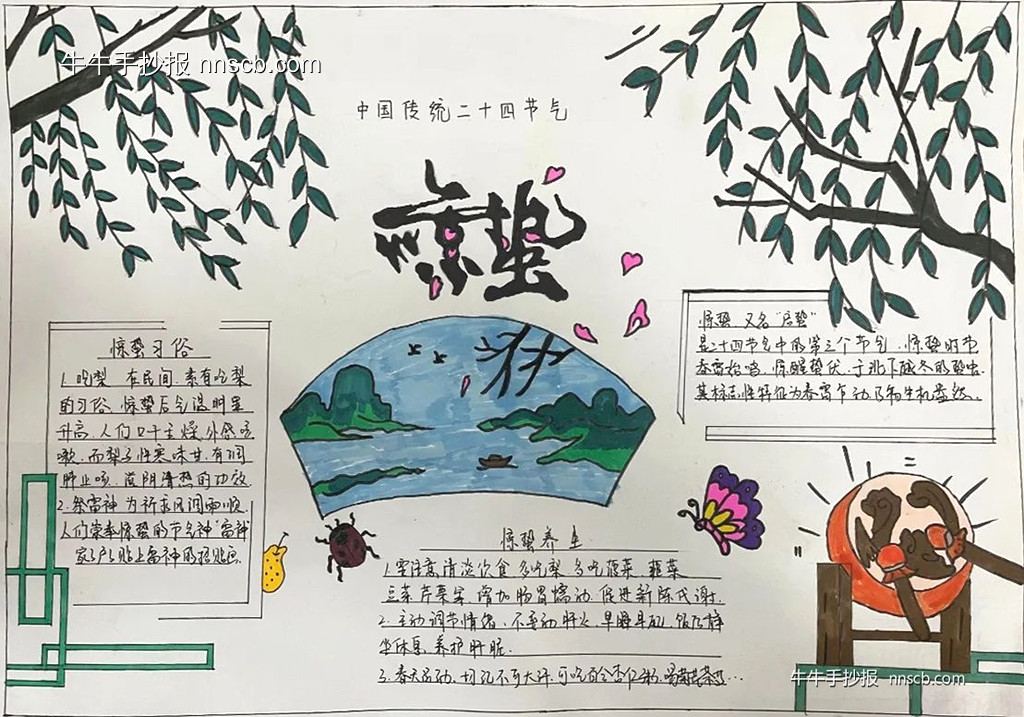 牛牛手抄报 nnscb.com
中国传统二十四节气
惊蛰
惊蛰、又名“启蛰”
是二十四节气中的第三个节气、惊蛰时节
春雷始鸣、惊醒蛰伏于地下越冬的蛰虫
其标志性特征为春雷乍动、万物生机盎然。
惊蛰习俗
1. 吃梨 在民间、素有吃梨
的习俗、惊蛰后气温明显
升高、人们口干舌燥、外感咳
嗽、而梨子性寒味甘、有润
肺止咳、滋阴清热的功效
2. 祭雷神 为祈求风调雨顺
人们崇奉惊蛰的节气神“雷神”
家户户贴上雷神的招贴画
惊蛰养生
1. 要注意清淡饮食、多吃梨、多吃菠菜、
芹菜等、增加肠胃蠕动、促进新陈代谢.
2. 主动调节情绪、不要动肝火、早睡早起、饭后静
坐休息、养护肝脏
3. 春天运动、切记不可大汗、可吃百合杏仁粥、喝菊花茶
牛牛手抄报 nnscb.com